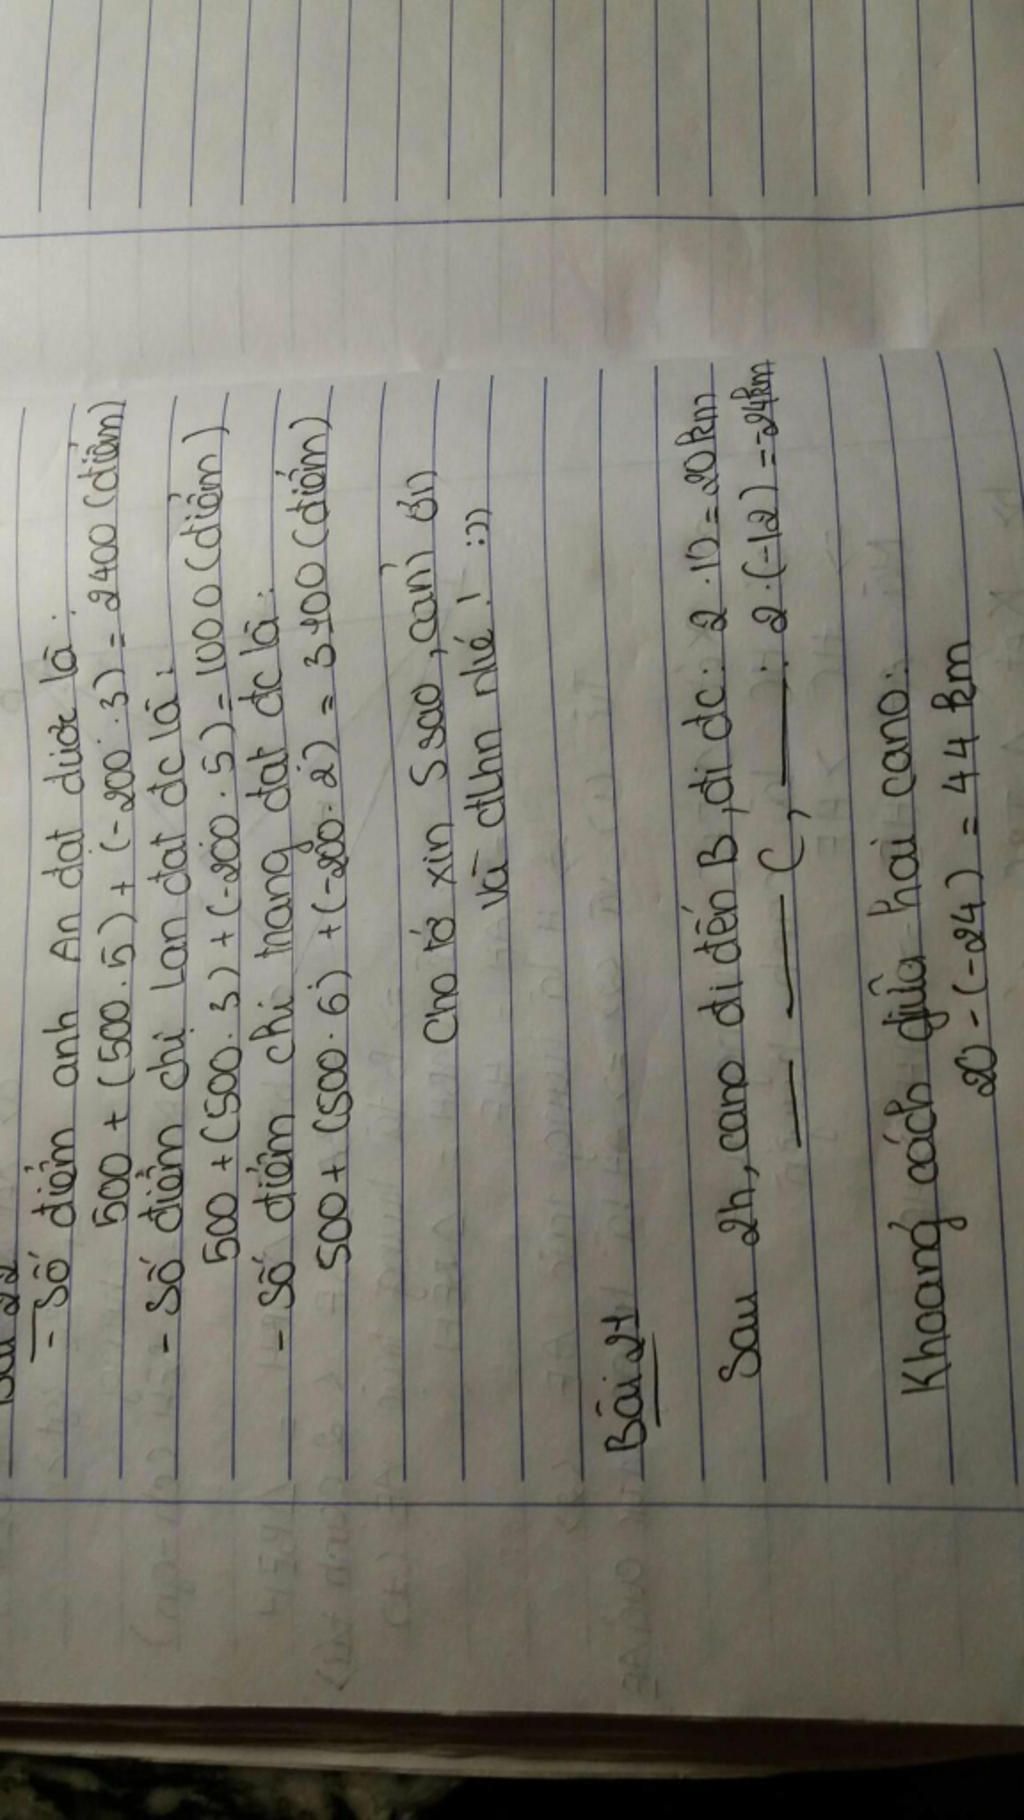 Bài 22
- Số điểm anh An đạt được là:
500 + (500 . 5) + (-200 . 3) = 2400 (điểm)
- Số điểm chị Lan đạt đc là:
500 + (500 . 3) + (-200 . 5) = 1000 (điểm)
- Số điểm chị Trang đạt đc là:
500 + (500 . 6) + (-200 . 2) = 3100 (điểm)
Cho tớ xin 5 sao, cảm ơn
và ctlhn nhé! :))
Bài 21
Sau 2h, cano đi đến B, đi đc: 2 . 10 = 20km
— — — C, —: 2 . (-12) = -24km
Khoảng cách giữa hai cano:
20 - (-24) = 44 km